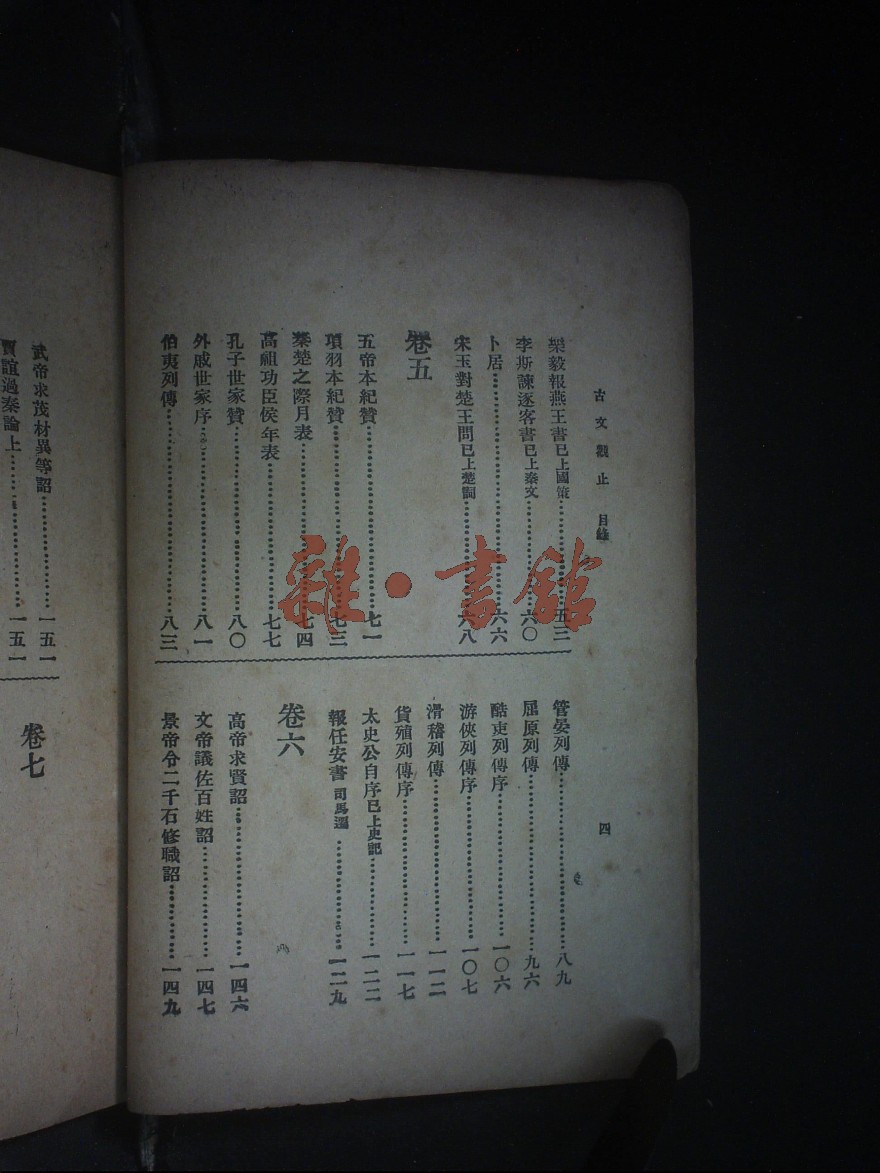 古文觀止 目錄
四
樂毅報燕王書已上國策……五三
李斯諫逐客書已上秦文……六〇
卜居……六六
宋玉對楚王問已上楚詞……六八
卷五
五帝本紀贊……七一
項羽本紀贊……七三
秦楚之際月表……七四
高祖功臣侯年表……七七
孔子世家贊……八〇
外戚世家序……八一
伯夷列傳……八三
管晏列傳……八九
屈原列傳……九六
酷吏列傳序……一〇六
游俠列傳序……一〇七
滑稽列傳……一一二
貨殖列傳序……一一七
太史公自序已上史記……一二二
報任安書 司馬遷……一二九
卷六
高帝求賢詔……一四六
文帝議佐百姓詔……一四七
景帝令二千石修職詔……一四九
武帝求茂材異等詔……一五一
賈誼過秦論上……一五一
卷七
雜·書館